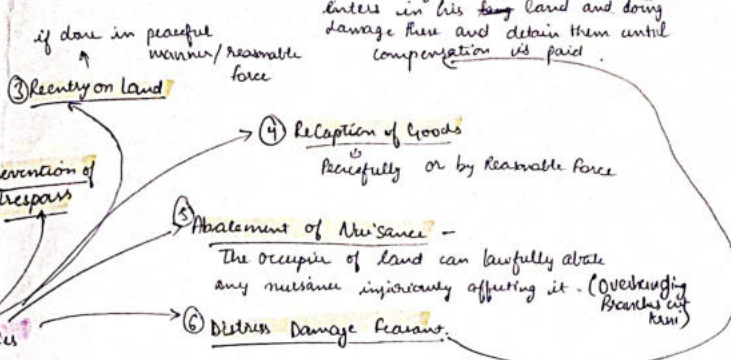 enters in his land and doing
damage there and detain them until
compensation is paid.
if done in peaceful
manner/reasonable
force
③ Reentry on Land
④ ReCaption of Goods
Peacefully or by Reasonable Force
evention of
trespass
⑤ Abatement of Nuisance –
The occupier of land can lawfully abate
any nuisance injuriously affecting it. (Overhanging
Branches cut
krni)
⑥ Distress Damage Feasant.
ies